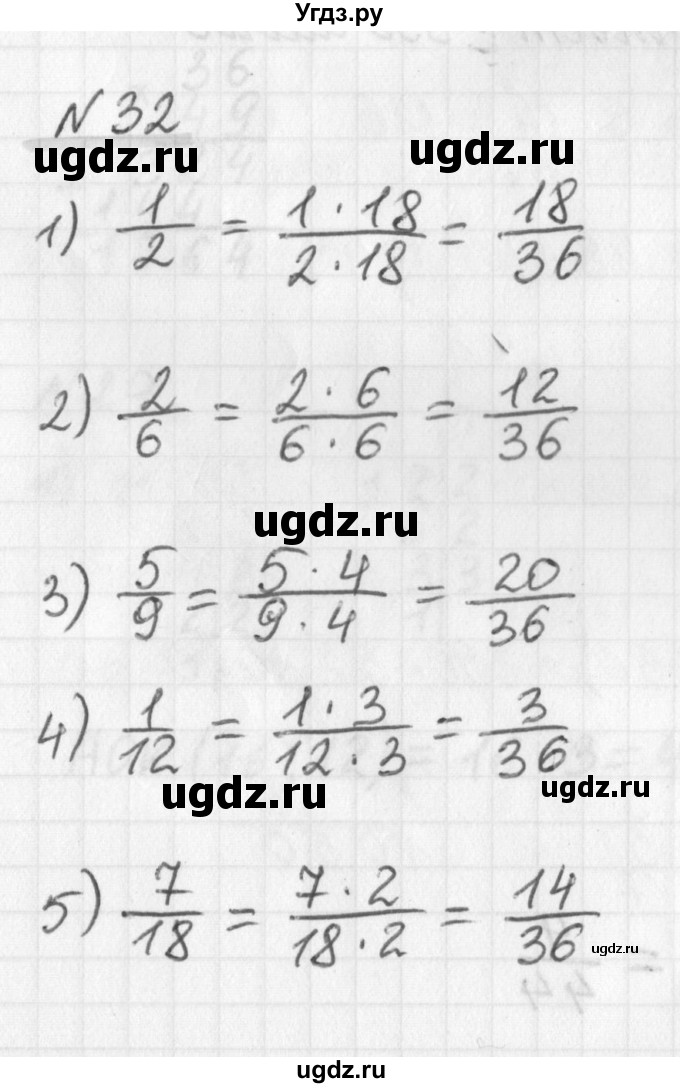 Угдз.ру
N 32
ugdz.ru ugdz.ru
1) 1/2 = 1·18/2·18 = 18/36
2) 2/6 = 2·6/6·6 = 12/36
ugdz.ru
3) 5/9 = 5·4/9·4 = 20/36
4) 1/12 = 1·3/12·3 = 3/36
ugdz.ru ugdz.ru
5) 7/18 = 7·2/18·2 = 14/36
ugdz.ru
ugdz.ru